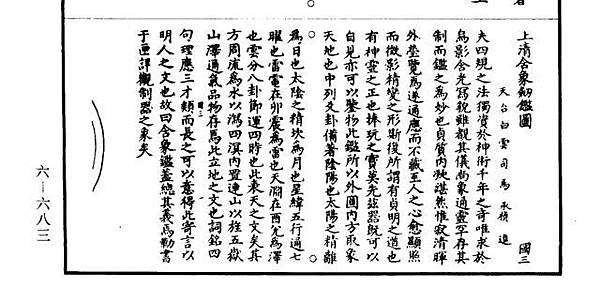 上清含象劍鑑圖
國三
天台白雲司馬承禎進
夫四規之法獨資於神術千年之奇唯求於
烏影含光寫貌雖覩其儀尚象通靈罕存其
制而鑑之為妙也貞質內凝湛然惟寂清暉
外瑩覽焉遂通應而不藏至人之心愈顯照
而微影精變之形斯復所謂有貞明之道也
有神靈之正也捧玩之寶莫先茲器既可以
自見亦可以鑒物此鑑所以外圓內方取象
天地也中列爻卦備著陰陽也太陽之精離
為日也太陰之精坎為月也星緯五行通七
曜也雷電在卯震為雷也天淵在酉兌為澤
也雲分八卦節運四時也此表天之文矣其
方周流為水以瀉四溟內置連山以旌五嶽
山澤通氣品物存焉此立地之文也詞銘四
句理應三才類而長之可以意得此寄言以
明人之文也故曰含象鑑蓋總其義焉勒書
于匣詳觀制器之象矣
六—六八三